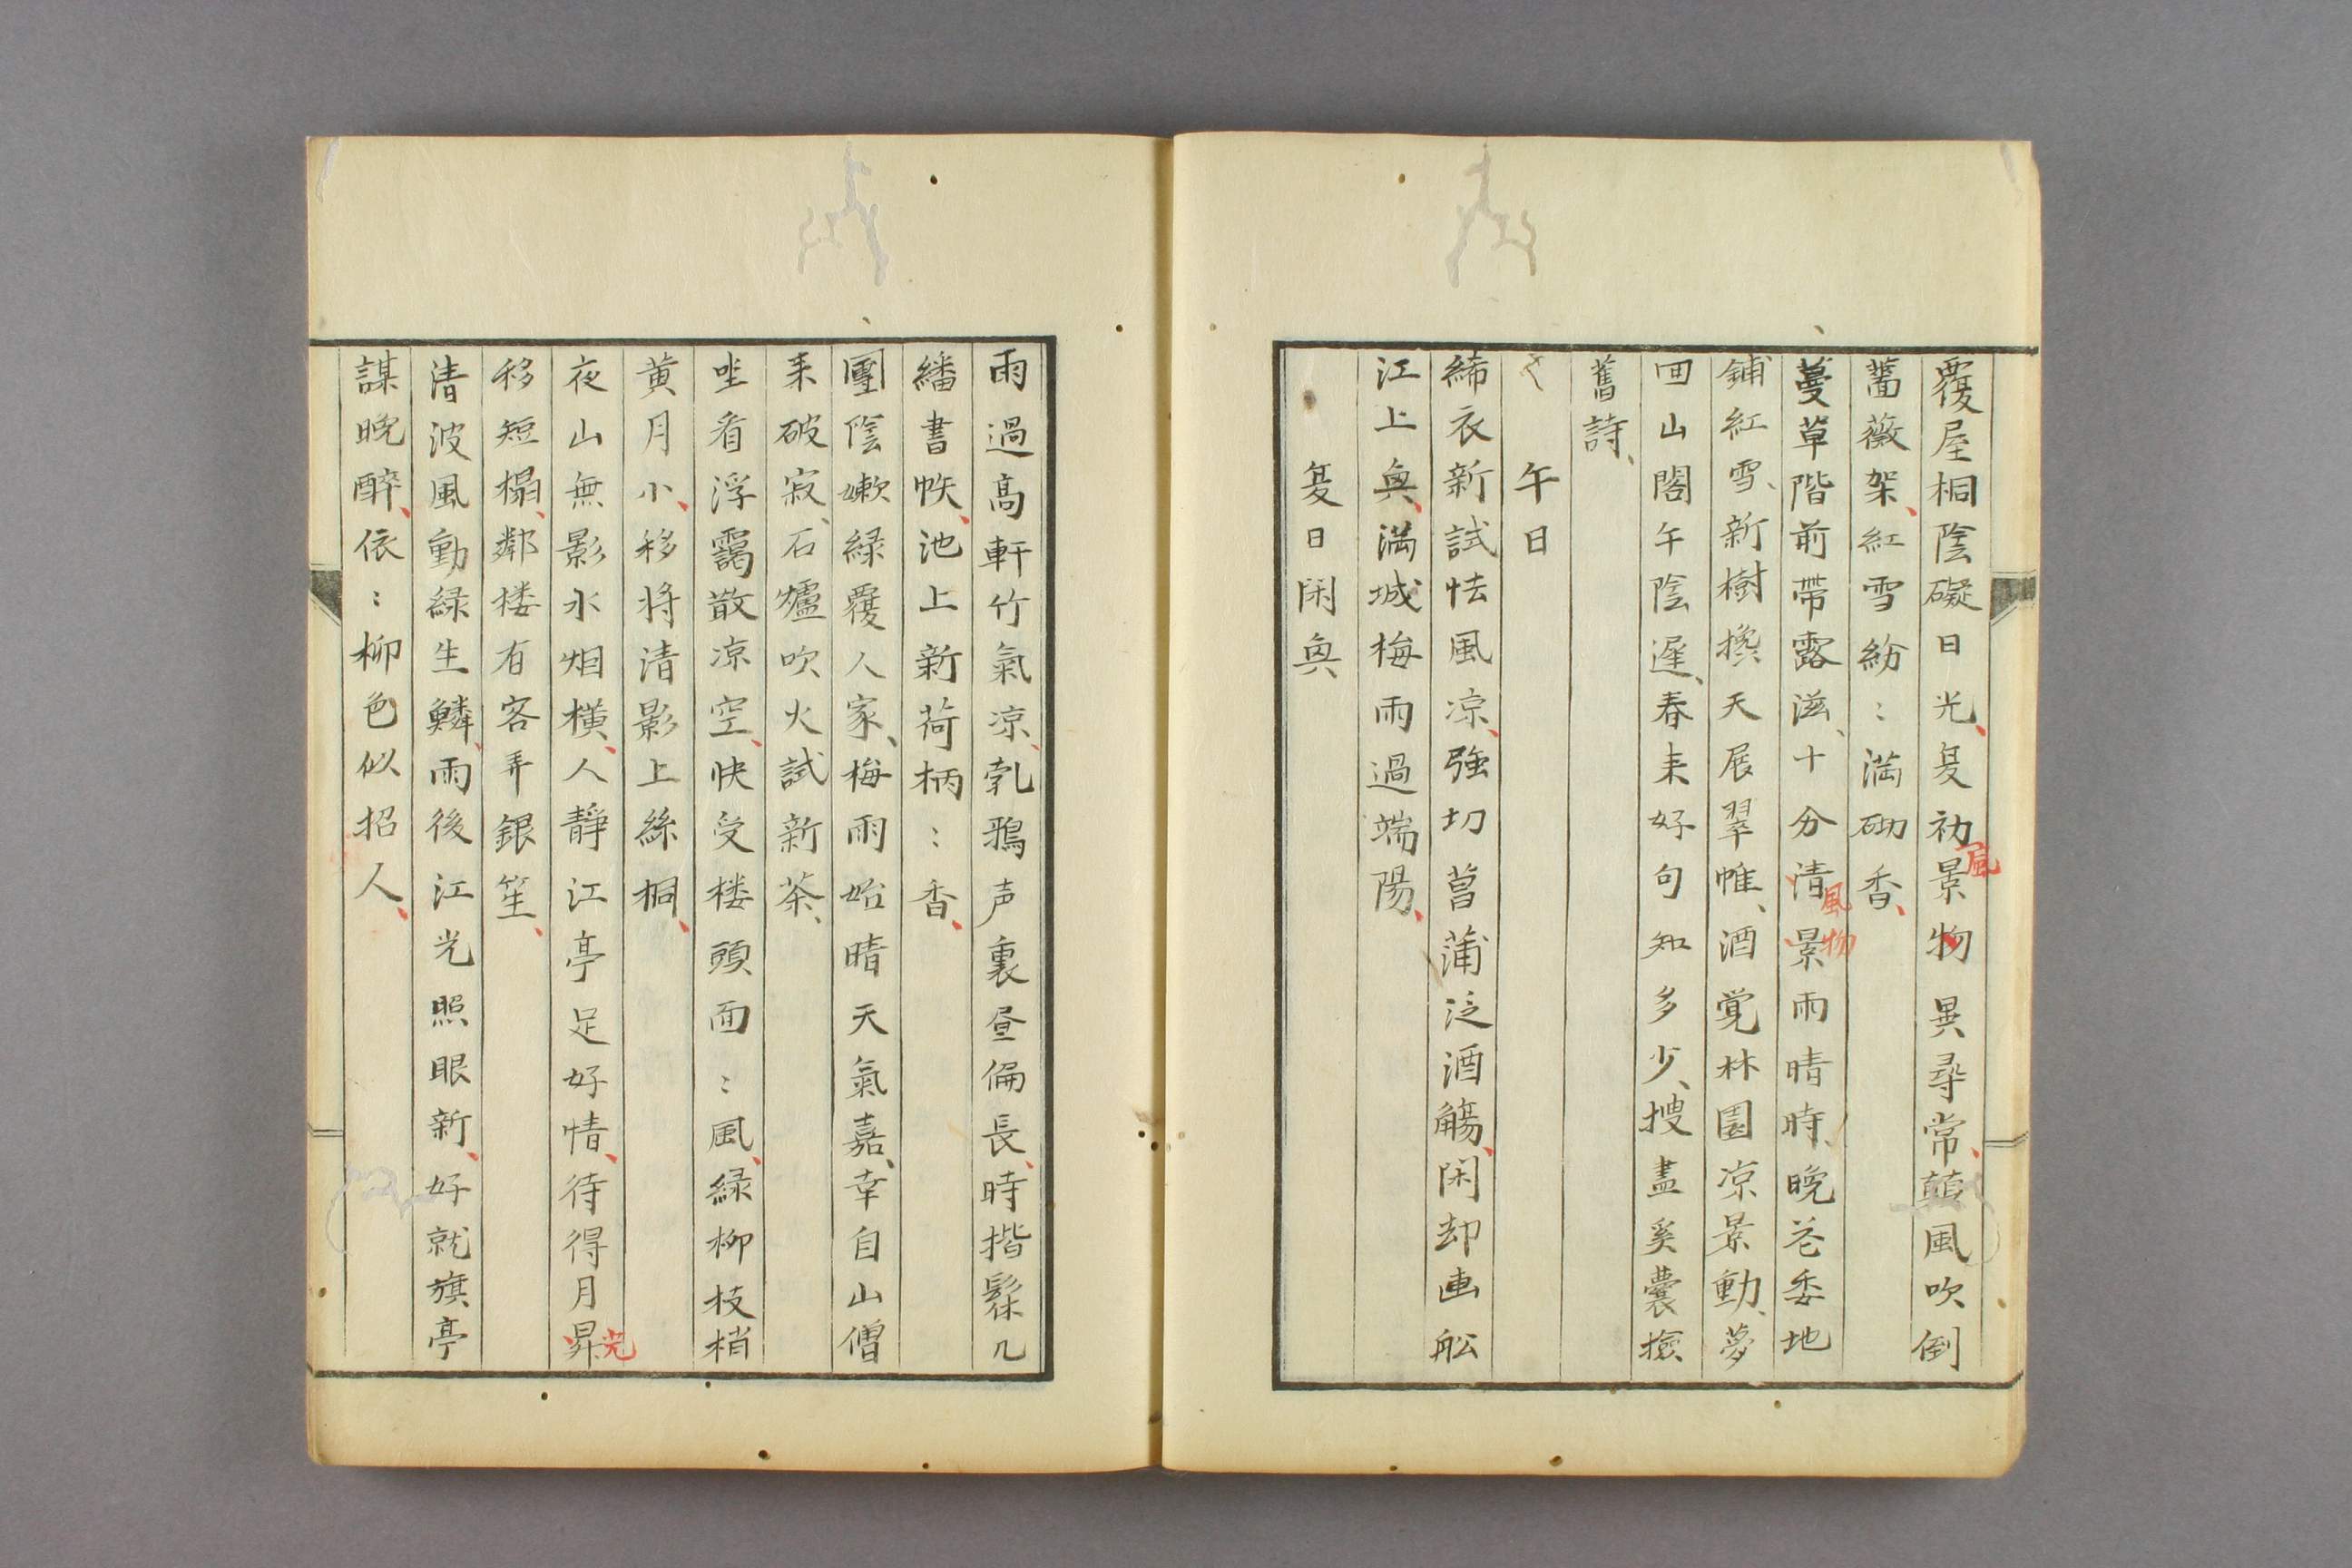 覆屋桐陰礙日光、夏初景物異尋常、顛風吹倒
風
薔薇架、紅雪紛〻満砌香、
蔓草階前帯露滋、十分清景雨晴時、晩苍委地
風物
鋪紅雪、新樹攙天展翠帷、酒覚林園凉景動、夢
囬山閣午陰遲、春来好句知多少、捜盡奚囊撿
舊詩、
午日
絺衣新試怯風凉、強切菖蒲泛酒觴、閑却画舩
江上興、満城梅雨過端陽、
夏日閑興
雨過高軒竹氣凉、乳鴉声裏昼偏長、時揩髹几
繙書帙、池上新荷柄〻香、
團陰嫩緑覆人家、梅雨始晴天氣嘉、幸自山僧
来破寂、石爐吹火試新茶、
坐看浮靄散凉空、快受楼頭面〻風、緑柳枝梢
黄月小、移将清影上絲桐、
夜山無影水烟横、人靜江亭足好情、待得月昇
光
移短榻、鄰楼有客弄銀笙、
清波風動緑生鱗、雨後江光照眼新、好就旗亭
謀晩醉、依〻柳色似招人、